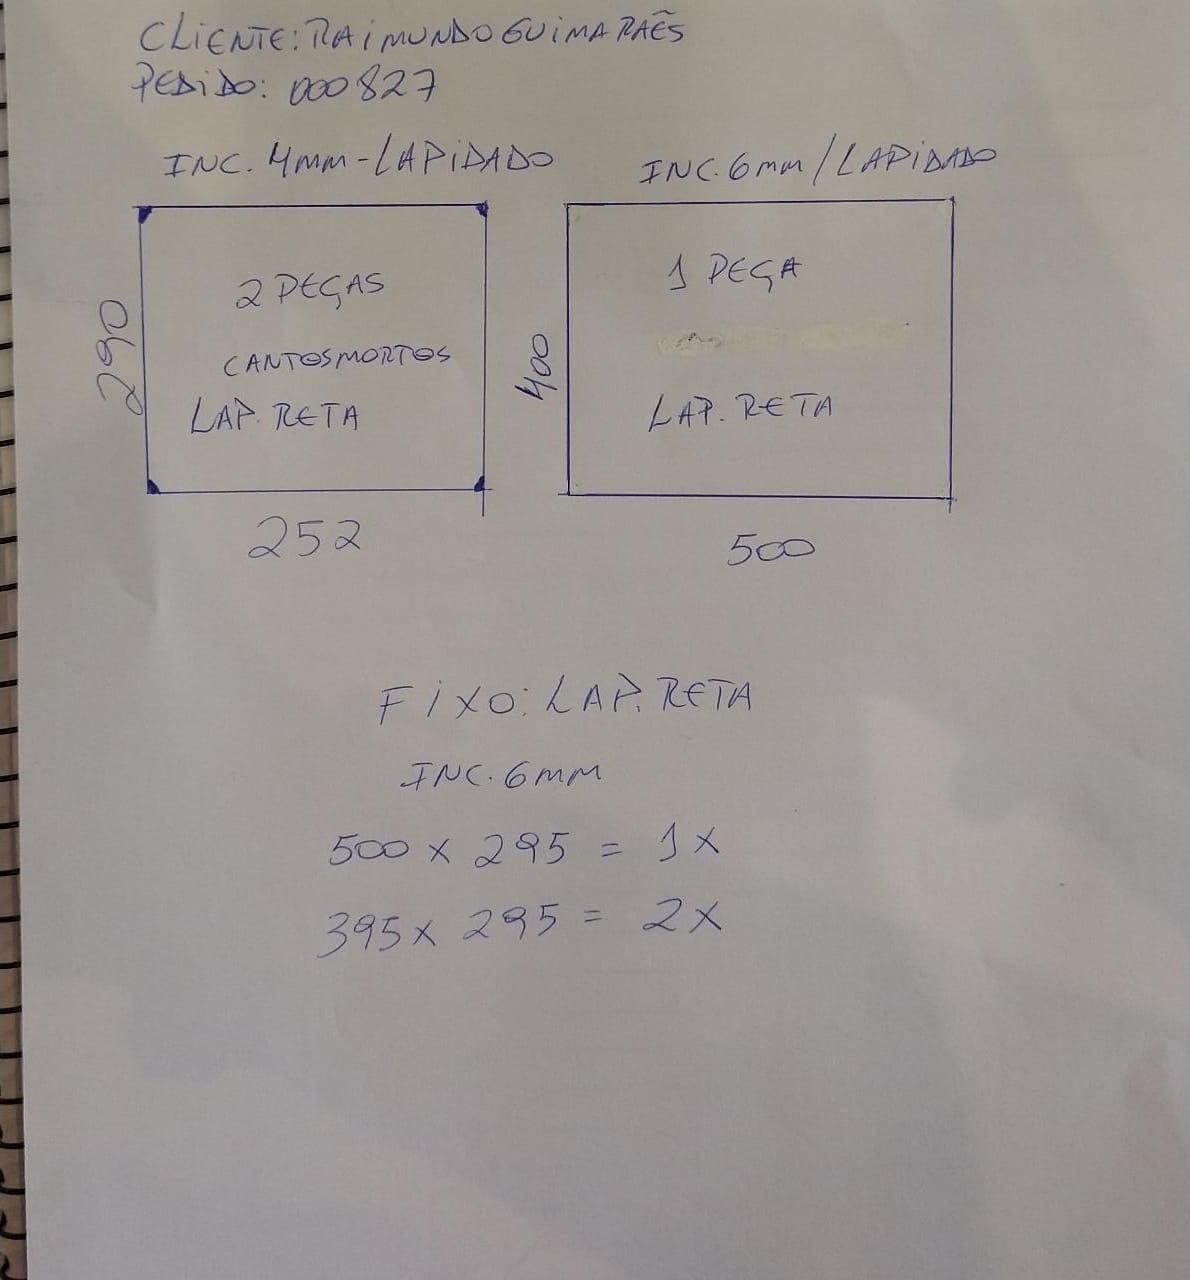 CLIENTE: RAIMUNDO GUIMARAẼS
PEDIDO: 000827
INC. 4mm-LAPIDADO
INC. 6mm/LAPIDADO
290
2 PEÇAS
CANTOS MORTOS
LAP. RETA
252
400
1 PEÇA
LAP. RETA
500
FIXO: LAP. RETA
INC. 6mm
500 x 295 = 1x
395 x 295 = 2x